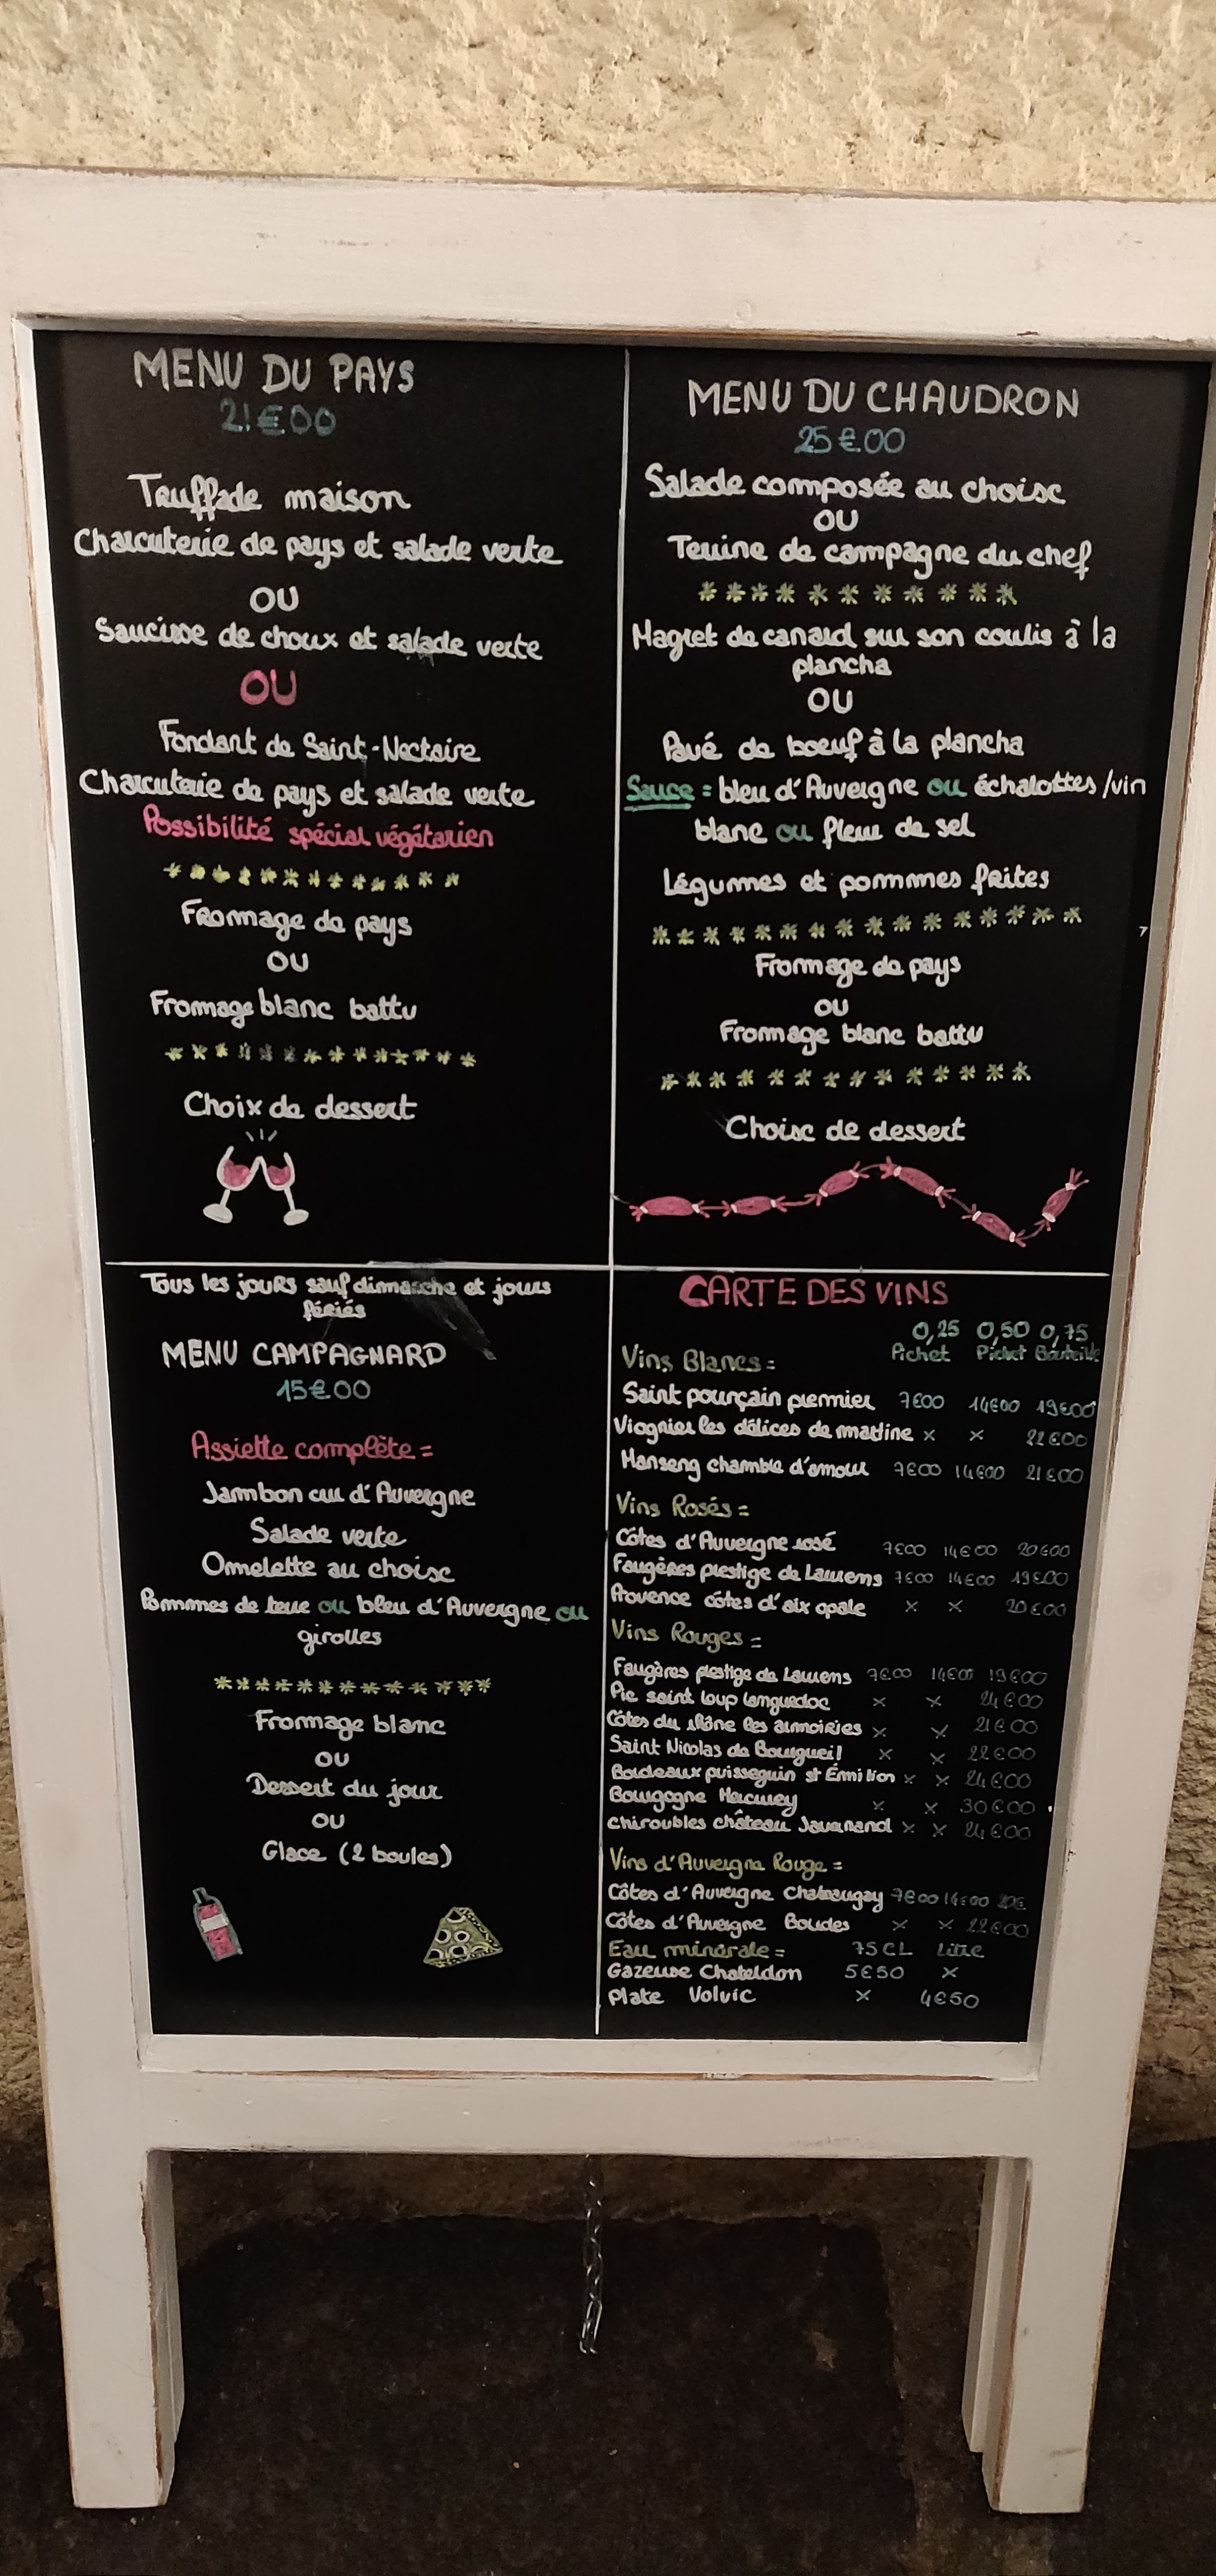 MENU DU PAYS
21€00
Truffade maison
Charcuterie de pays et salade verte
OU
Saucisse de choux et salade verte
OU
Fondant de Saint-Nectaire
Charcuterie de pays et salade verte
Possibilité spécial végétarien
Fromage de pays
OU
Fromage blanc battu
Choix de dessert
MENU DU CHAUDRON
25€00
Salade composée au choix
OU
Terrine de campagne du chef
Magret de canard sur son coulis à la
plancha
OU
Pavé de boeuf à la plancha
Sauce = bleu d'Auvergne ou échalottes/vin
blanc ou fleur de sel
Légumes et pommes frites
Fromage de pays
OU
Fromage blanc battu
Choix de dessert
Tous les jours sauf dimanche et jours
fériés
MENU CAMPAGNARD
15€00
Assiette complète =
Jambon cru d'Auvergne
Salade verte
Omelette au choix
Pommes de terre ou bleu d'Auvergne ou
girolles
Fromage blanc
OU
Dessert du jour
OU
Glace (2 boules)
CARTE DES VINS
0,25 0,50 0,75
Pichet Pichet Bouteille
Vins Blancs =
Saint pourçain premier 7€00 14€00 19€00
Viognier les délices de martine x x 22€00
Manseng chamble d'amour 7€00 14€00 21€00
Vins Rosés =
Côtes d'Auvergne rosé 7€00 14€00 20€00
Faugères prestige de Laurens 7€00 14€00 19€00
Provence côtes d'aix opale x x 20€00
Vins Rouges =
Faugères prestige de Laurens 7€00 14€00 19€00
Pic saint loup languedoc x x 24€00
Côtes du rhône les armoiries x x 21€00
Saint Nicolas de Bourgueil x x 22€00
Bordeaux puisseguin st Émilion x x 24€00
Bourgogne Mercurey x x 30€00
Chiroubles château Javernand x x 24€00
Vins d'Auvergne Rouge =
Côtes d'Auvergne Chateaugay 7€00 14€00 20€
Côtes d'Auvergne Boudes x x 22€00
Eau minérale = 75CL Litre
Gazeuse Chateldon 5€50 x
Plate Volvic x 4€50